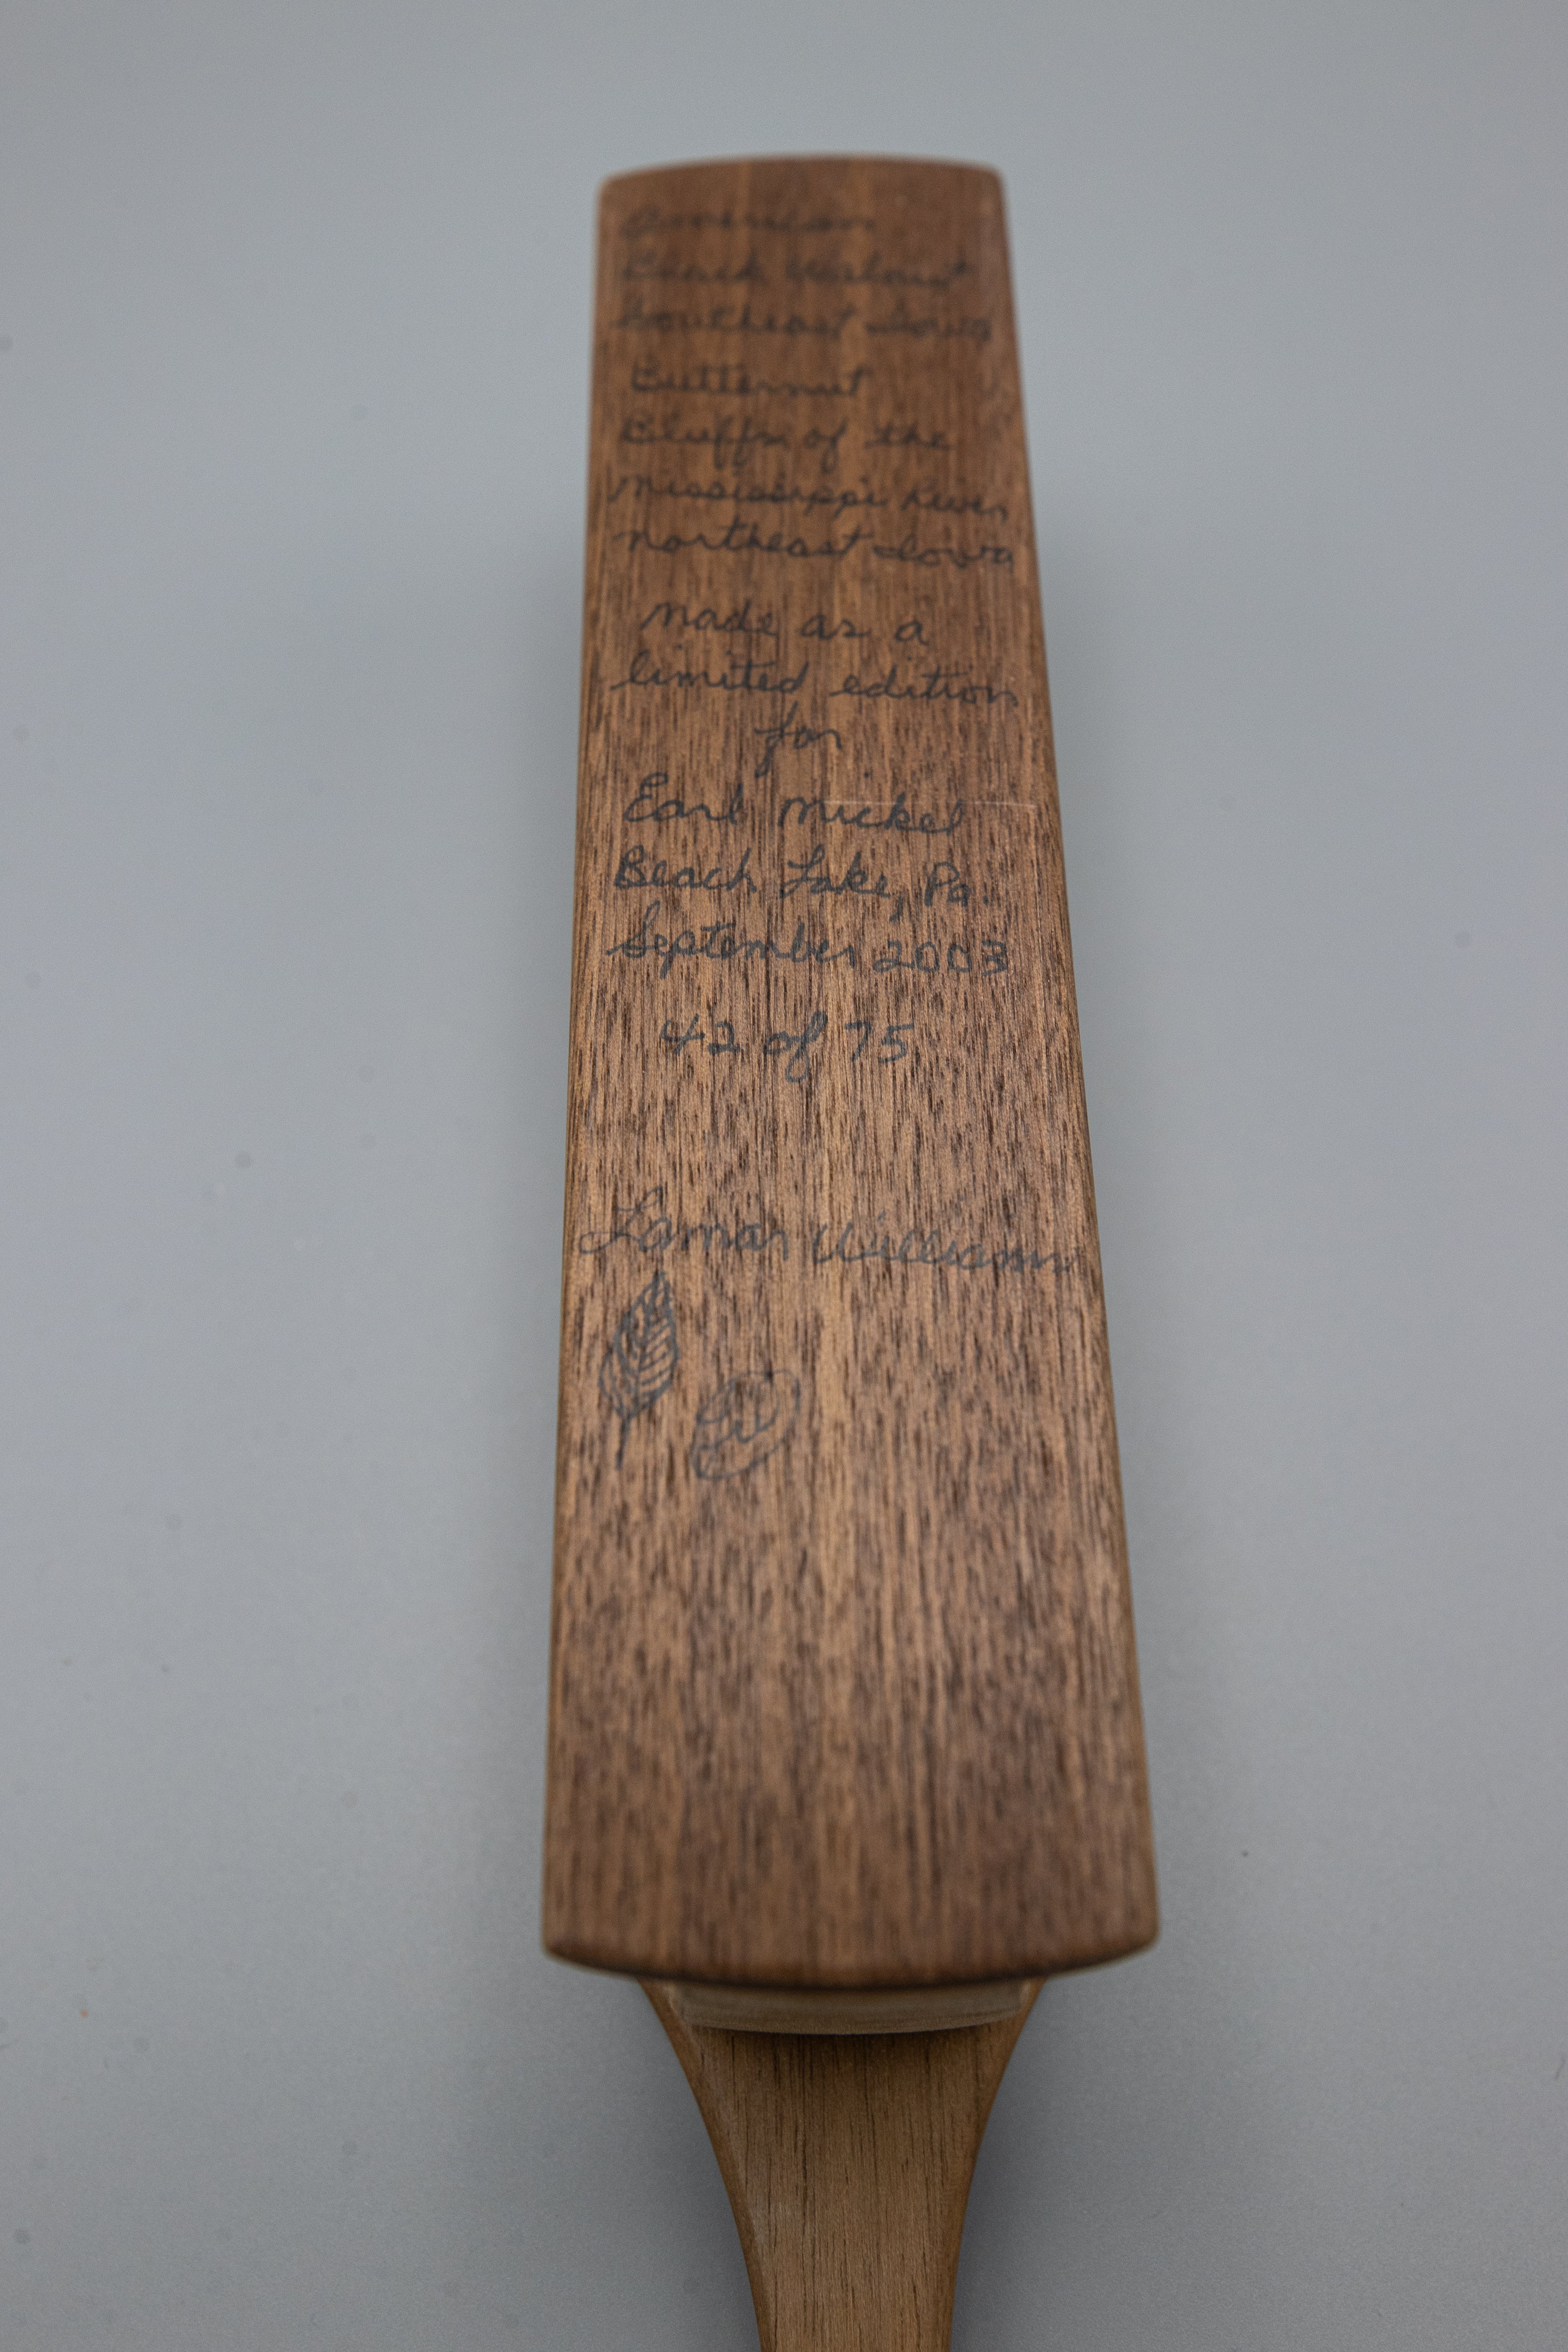 American
Black Walnut
Southeast Iowa
Butternut
Bluffs of the
Mississippi River
northeast Iowa
made as a
limited edition
for
Earl Mickel
Beach Lake, Pa.
September 2003
42 of 75
Lamar Williams